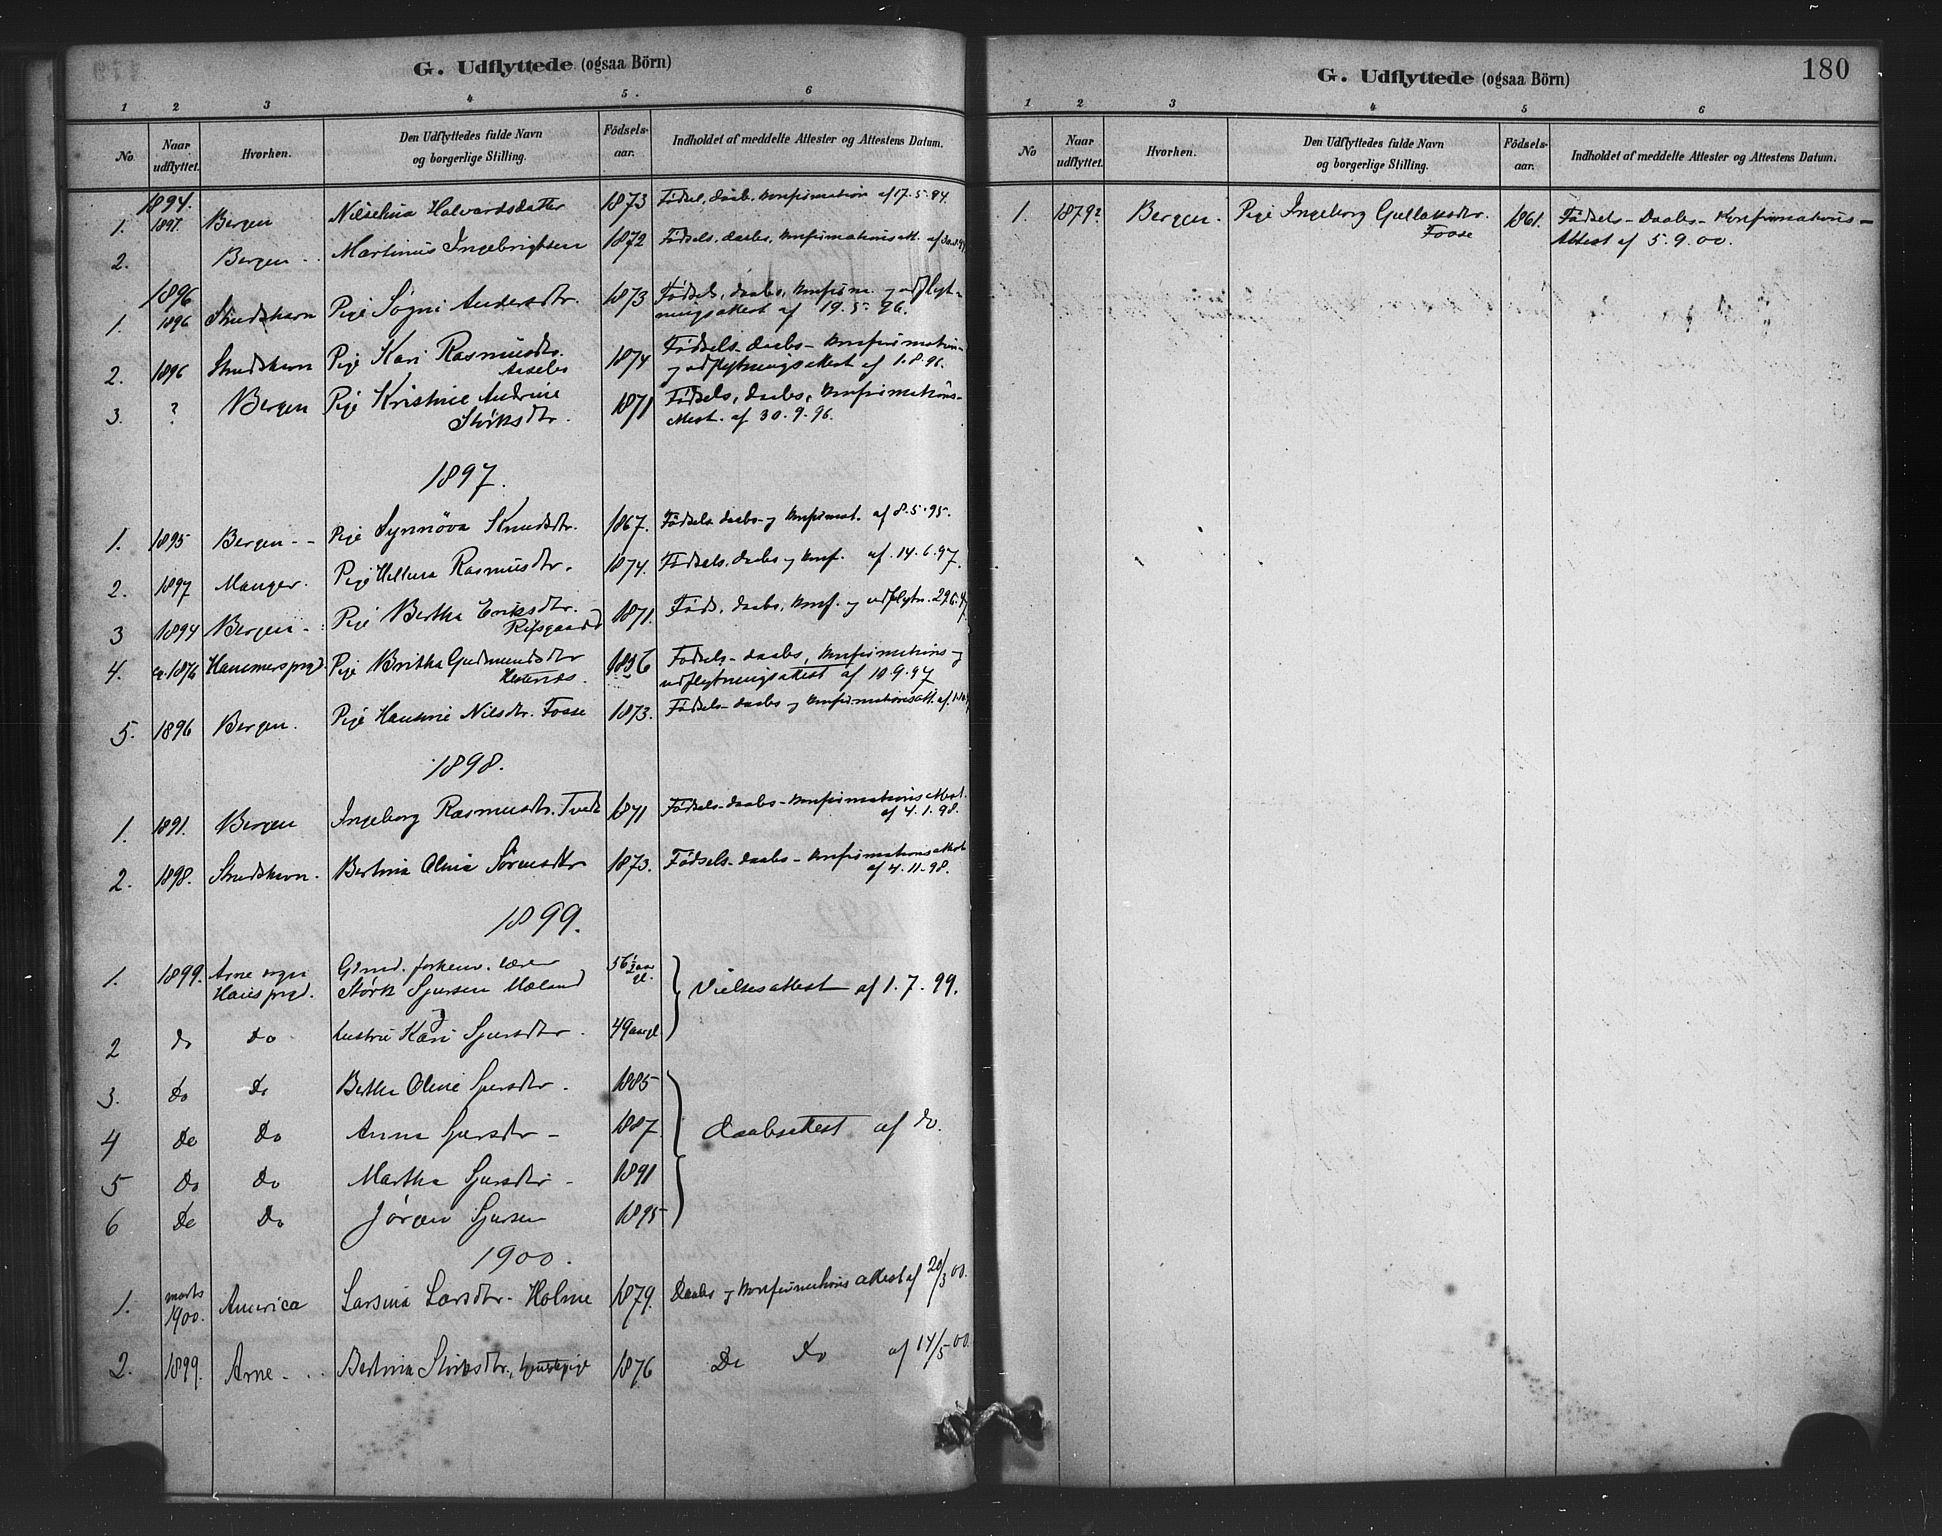 G. Udflyttede (ogsaa Börn)
1 2 3 4 5. 6
No. Naar udflyttet. Hvorhen. Den Udflyttedes fulde Navn og borgerlige Stilling. Födsels-aar. Indholdet af meddelte Attester og Attestens Datum.
1894.
1. 1891. Bergen Nilsehna Halvardsdatter 1873 Födsel, daab, konfirmation af 17.5.94.
2. Bergen Martinus Ingebrigtsen 1872 Födsels, daabs, konfirmationsatt. af
1896
1. 1896 Strudshavn Pige Sögni Andersdtr. 1873 Fødsels, daabs, konfirm. og udflyt-
ningsattest af 19.5.96.
2. 1896 Strudshavn Pige Kari Rasmusdtr. 1874 Fødsels- daabs- konfirmation-
og udflytningsattest af 1.8.96.
3. ? Bergen Pige Kristine Andrine 1871 Fødsels, daabs, konfirmations-
Störksdtr. attest. af 30.9.96.
1897.
1. 1895 Bergen - - Pige Synnöva Knudsdtr. 1867. Födsels daabs- og konfirmat. af 8.5.95.
2. 1897 Manger. Pige Rasmusdtr. 1874. Fødsels, daabs og konf. af 14.6.97.
3 1894 Bergen - Pige Bertha Eriksdtr. 1871. Føds, daabs, konf. og udflytn.
4. ca. 1876 Hammersprgd. Pige Britha Gudmundsdtr 1856 Fødsels- daabs, konfirmations- og
Hestenes. udflytningsattest af 10.9.97
5. 1896 Bergen. Pige Hansine Nilsdtr. Fosse 1873. Fødsels- daabs og konfirmationsatt. af
1898.
1. 1891. Bergen Ingeborg Rasmusdtr. Tvedt 1871 Fødsels- daabs- konfirmations attest.
af 4.1.98.
2. 1898. Strudshavn. Bertina Olina Sörensdtr 1873. Fødsels- daabs- konfirmationsattest
af 4.11.98.
1899.
1. 1899. Arne sogn Gbmd. forhenv. lærer 56½ aar gl.
Haus prgd. Störk Sjursen Mæland Vielsesattest af 1.7.99.
2 do Do hustru Kari Sjursdtr. 49 aar gl.
3. Do Do Bertha Oline Sjursdtr. 1885
4 Do Do Anna Sjursdtr - 1887 Daabsattest af do.
5 Do Do Martha Sjursdtr - 1891
6 Do Do Jörgen Sjursen 1895
1900.
1. marts 1900. America Larsina Larsdtr. Holme 1879. Daabs og konfirmations attest af 20/3 00.
2. 1899. Arne - . . Bertina Störksdtr., tjenestepige 1876 Do Do af 14/5 00.
180
G. Udflyttede (ogsaa Börn)
1 2 3 4 5 6
No Naar udflyttet. Hvorhen. Den Udflyttedes fulde Navn og borgerlige Stilling. Födsels-aar. Indholdet af meddelte Attester og Attestens Datum.
1. 1879? Bergen. Pige Ingeborg Gullaksdtr. 1861. Fødsels- Daabs- Konfirmations-
Fosse Attest af 5.9.00.